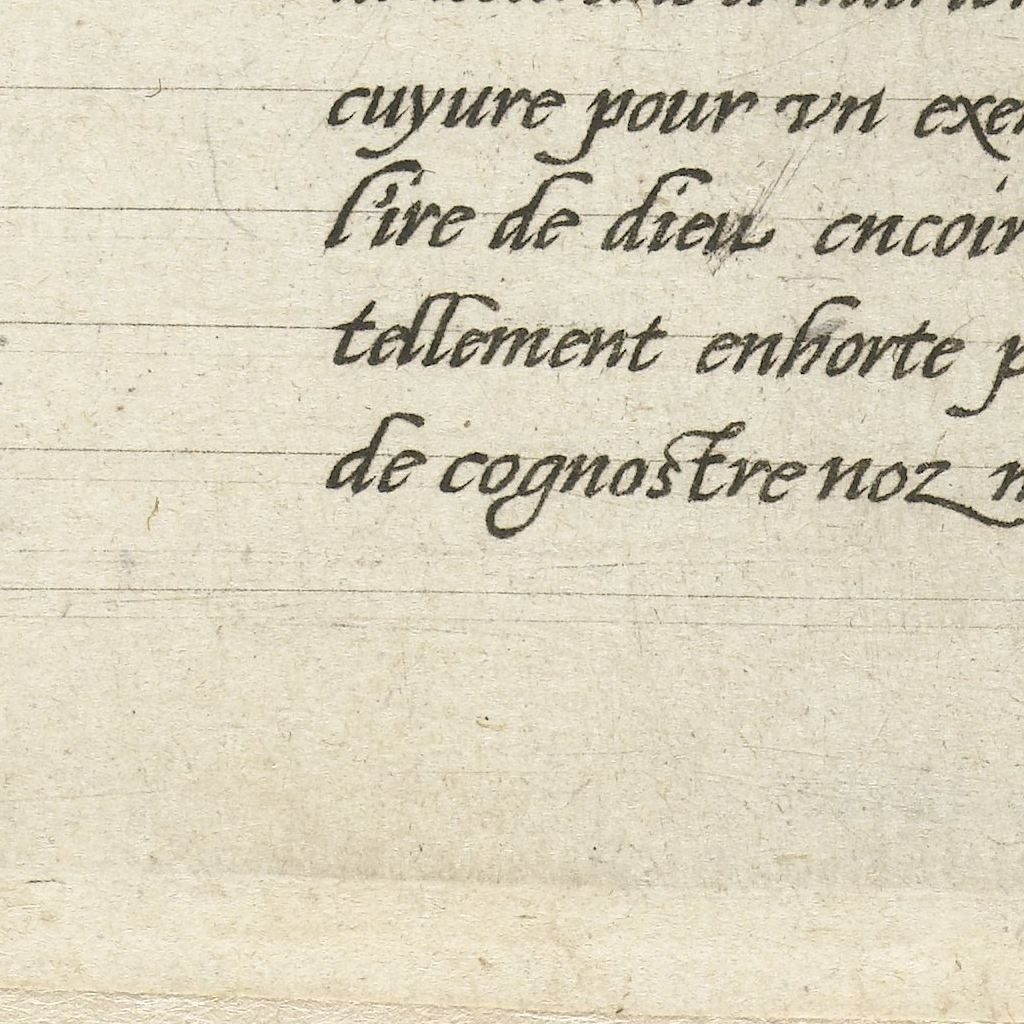 cuyure pour vn exem
l'ire de dieu encoir
tellement enhorte p
de cognostre noz m